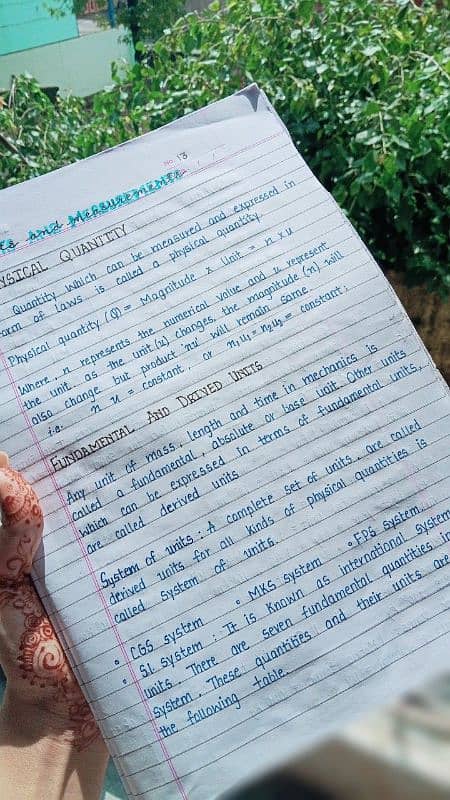 No 13
and Measurements
YSICAL QUANTITY
Quantity which can be measured and expressed in
of laws is called a physical quantity.
Physical quantity (Q) = Magnitude x Unit = n x u
Where, n represents the numerical value and u represent
the unit, as the unit (u) changes, the magnitude (n) will
also change but product 'nu' will remain same.
i.e. n u = constant, or n₁u₁ = n₂u₂ = constant;
FUNDAMENTAL AND DRIVED UNITS
Any unit of mass, length and time in mechanics is
called a fundamental, absolute or base unit. Other units
which can be expressed in terms of fundamental units,
are called derived units.
System of units : A complete set of units, are called
derived units for all kinds of physical quantities is
called system of units.
• CGS system • MKS system • FPS system
• S.I. system : It is known as international system
units. There are seven fundamental quantities in
system. These quantities and their units are
the following table.